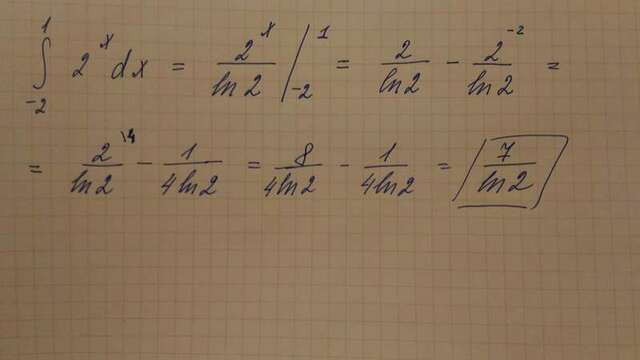 ∫_{-2}^{1} 2^x dx = 2^x/ln2 |_{-2}^{1} = 2/ln2 - 2^{-2}/ln2 =
= 2^{\4}/ln2 - 1/4ln2 = 8/4ln2 - 1/4ln2 = 7/ln2